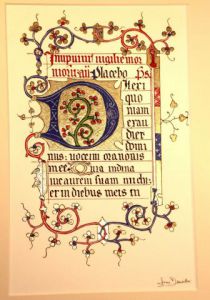 Incipiunt vigilie mor
tuorum añ Placebo Ps
Dilexi
quo
niam
exau
diet
domi
nus: vocem orationis
mee Quia inclina
vit aurem suam michi
et in diebus meis in